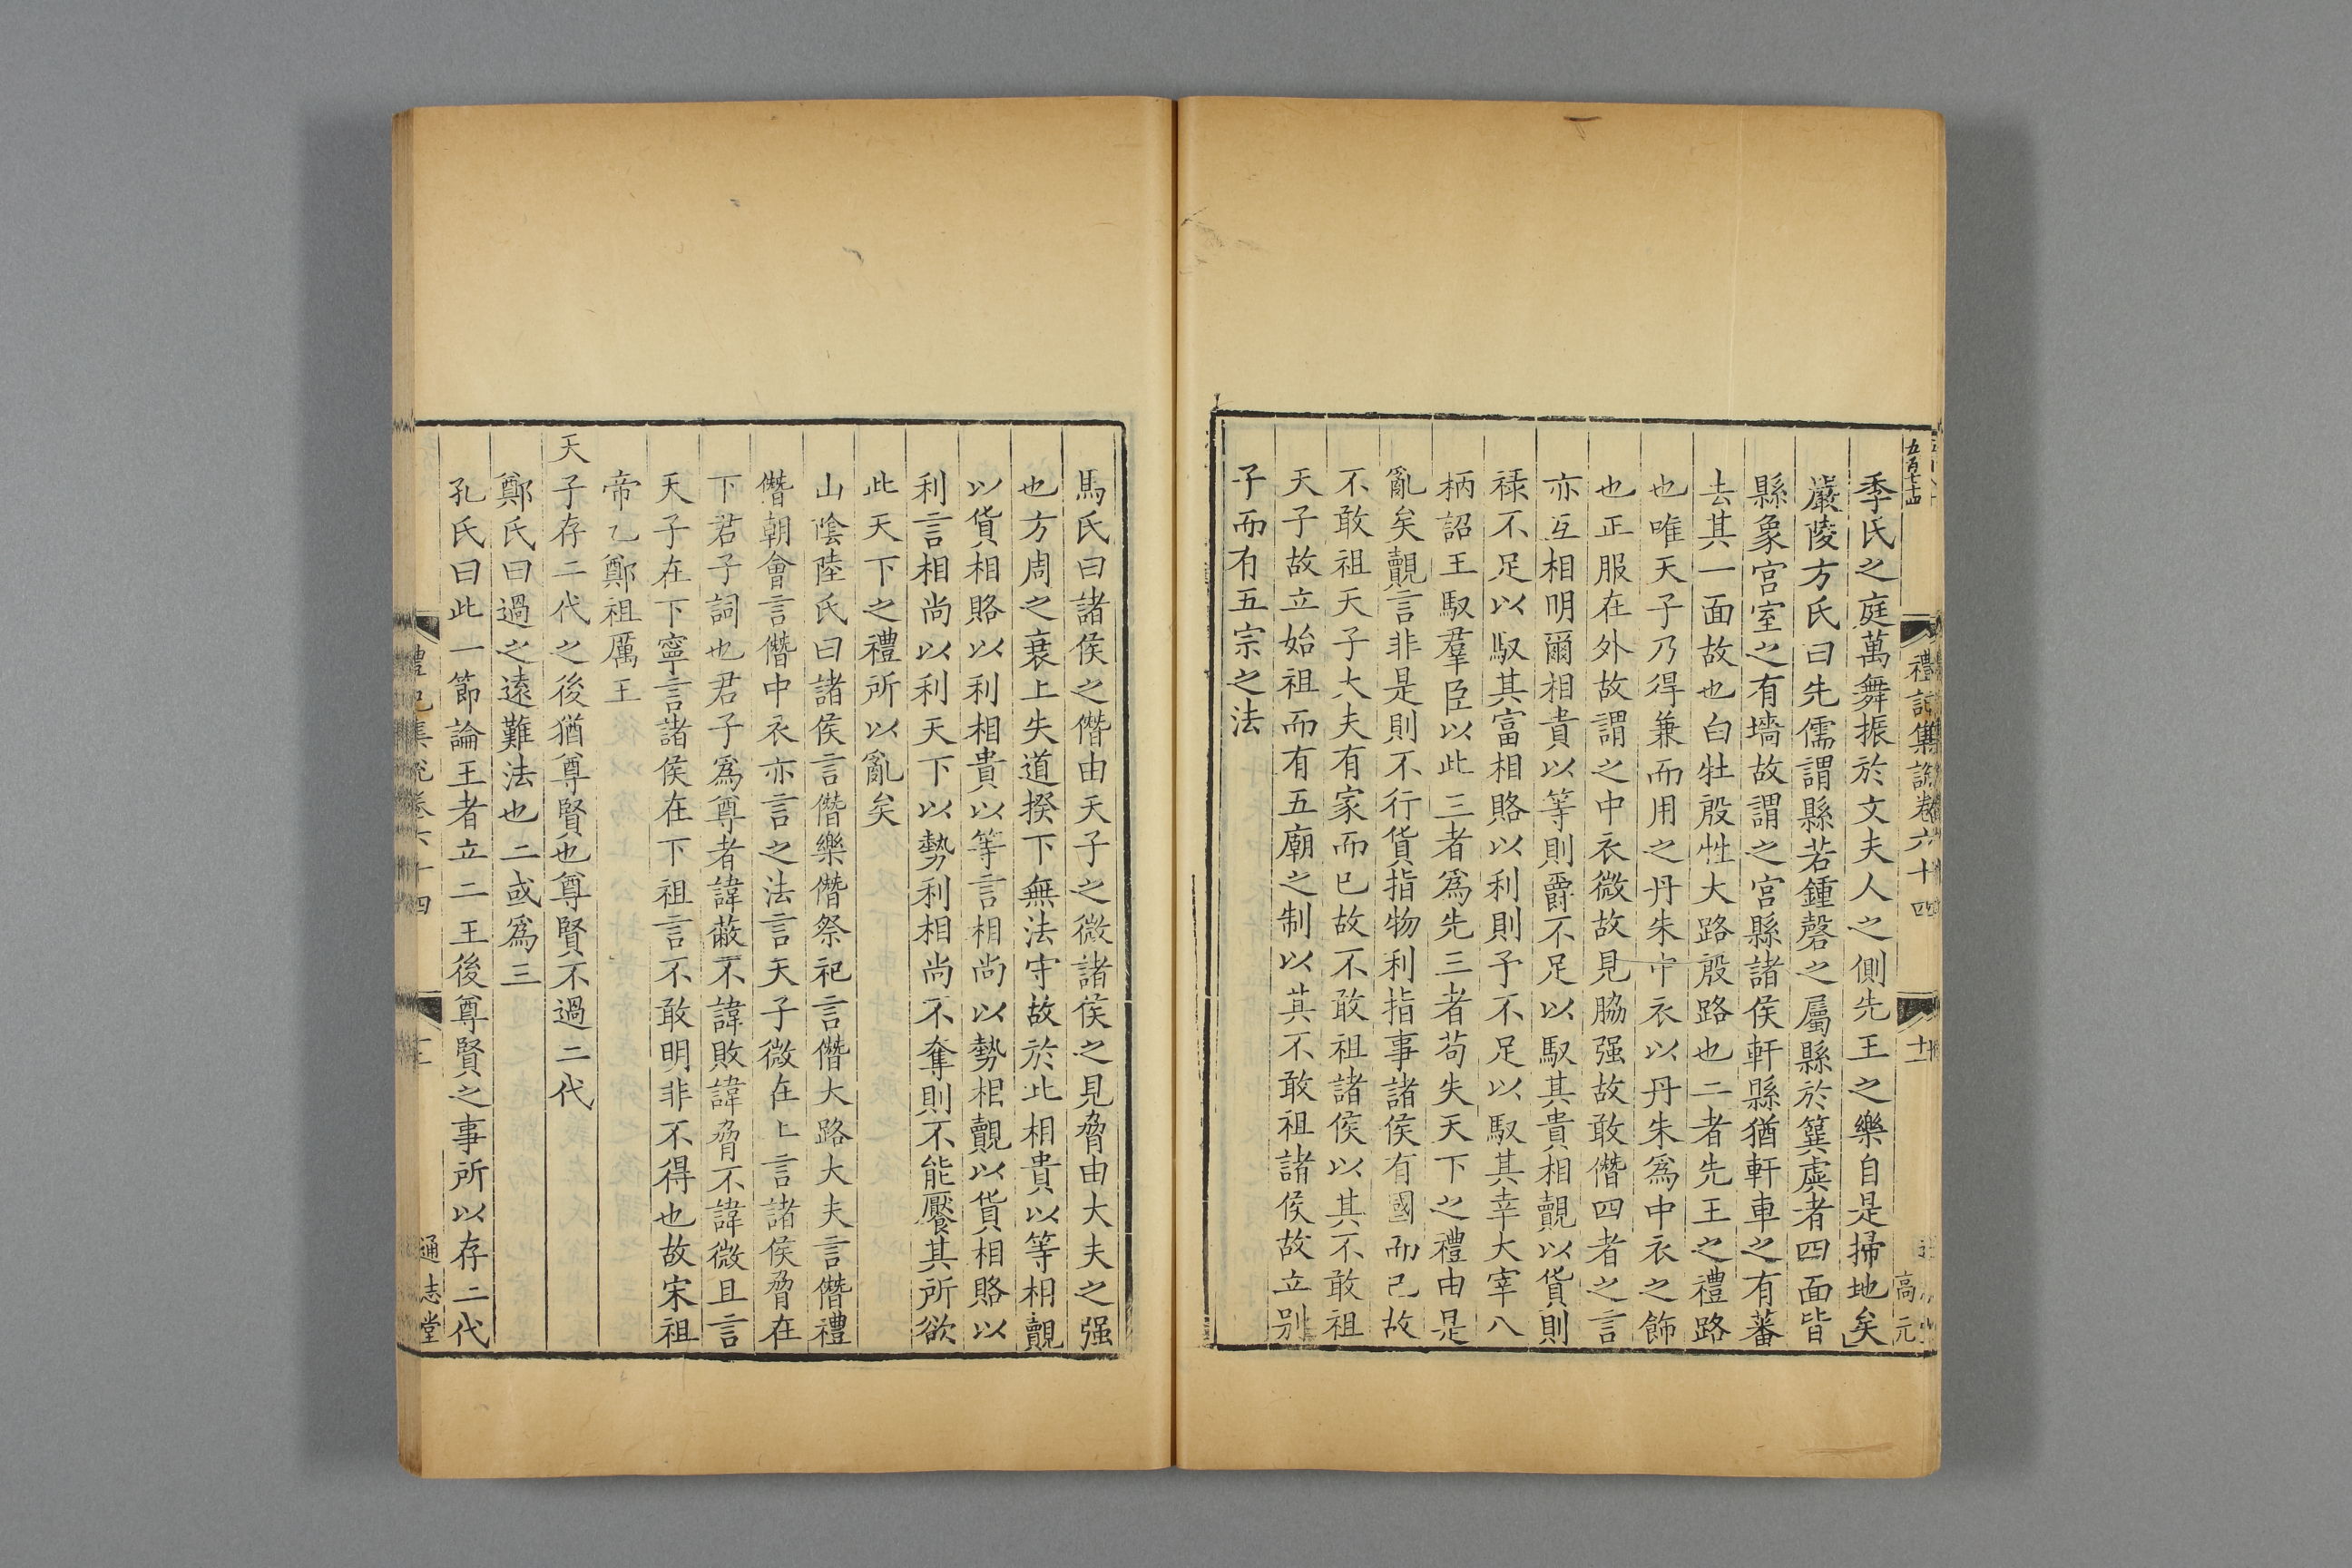 五百七十四
禮記集說卷六十四
十一
高元
季氏之庭萬舞振於文夫人之側先王之樂自是掃地矣
嚴陵方氏曰先儒謂縣若鍾磬之屬縣於簨虡者四面皆
縣象宮室之有墻故謂之宮縣諸侯軒縣猶軒車之有蕃
去其一面故也白牡殷牲大路殷路也二者先王之禮路
也唯天子乃得兼而用之丹朱中衣以丹朱爲中衣之飾
也正服在外故謂之中衣微故見脇强故敢僭四者之言
亦互相明爾相貴以等則爵不足以馭其貴相覿以貨則
祿不足以馭其富相賂以利則予不足以馭其幸大宰八
柄詔王馭羣臣以此三者爲先三者苟失天下之禮由是
亂矣覿言非是則不行貨指物利指事諸侯有國而已故
不敢祖天子大夫有家而已故不敢祖諸侯以其不敢祖
天子故立始祖而有五廟之制以其不敢祖諸侯故立別
子而有五宗之法
馬氏曰諸侯之僭由天子之微諸侯之見脅由大夫之强
也方周之衰上失道揆下無法守故於此相貴以等相覿
以貨相賂以利相貴以等言相尚以勢相覿以貨相賂以
利言相尚以利天下以勢利相尚不奪則不能饜其所欲
此天下之禮所以亂矣
山陰陸氏曰諸侯言僭樂僭祭祀言僭大路大夫言僭禮
僭朝會言僭中衣亦言之法言天子微在上言諸侯脅在
下君子詞也君子爲尊者諱蔽不諱敗諱脅不諱微且言
天子在下寧言諸侯在下祖言不敢明非不得也故宋祖
帝乙鄭祖厲王
天子存二代之後猶尊賢也尊賢不過二代
鄭氏曰過之遠難法也二或爲三
孔氏曰此一節論王者立二王後尊賢之事所以存二代
禮記集說卷六十四
通志堂